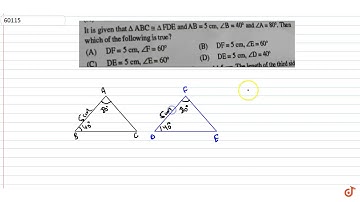 60115
It is given that Δ ABC ≅ Δ FDE and AB = 5 cm, ∠B = 40° and ∠A = 80°. Then
which of the following is true?
(A) DF = 5 cm, ∠F = 60° (B) DF = 5 cm, ∠E = 60°
(C) DE = 5 cm, ∠E = 60° (D) DE = 5 cm, ∠D = 40°
The length of the third side
A F
5cm 80° 5cm 80°
40° 40°
B C D E